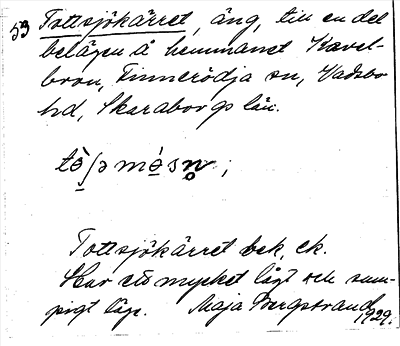 59 Tottsjökärret, äng, till en del
belägen å hemmanet Kavel-
bron, Finnerödja sn, Vadsbo
hd, Skaraborgs län.
Tottsjökärret bek. ek.
Har ett mycket lågt och sum-
pigt läge. Maja Bergstrand
1929.